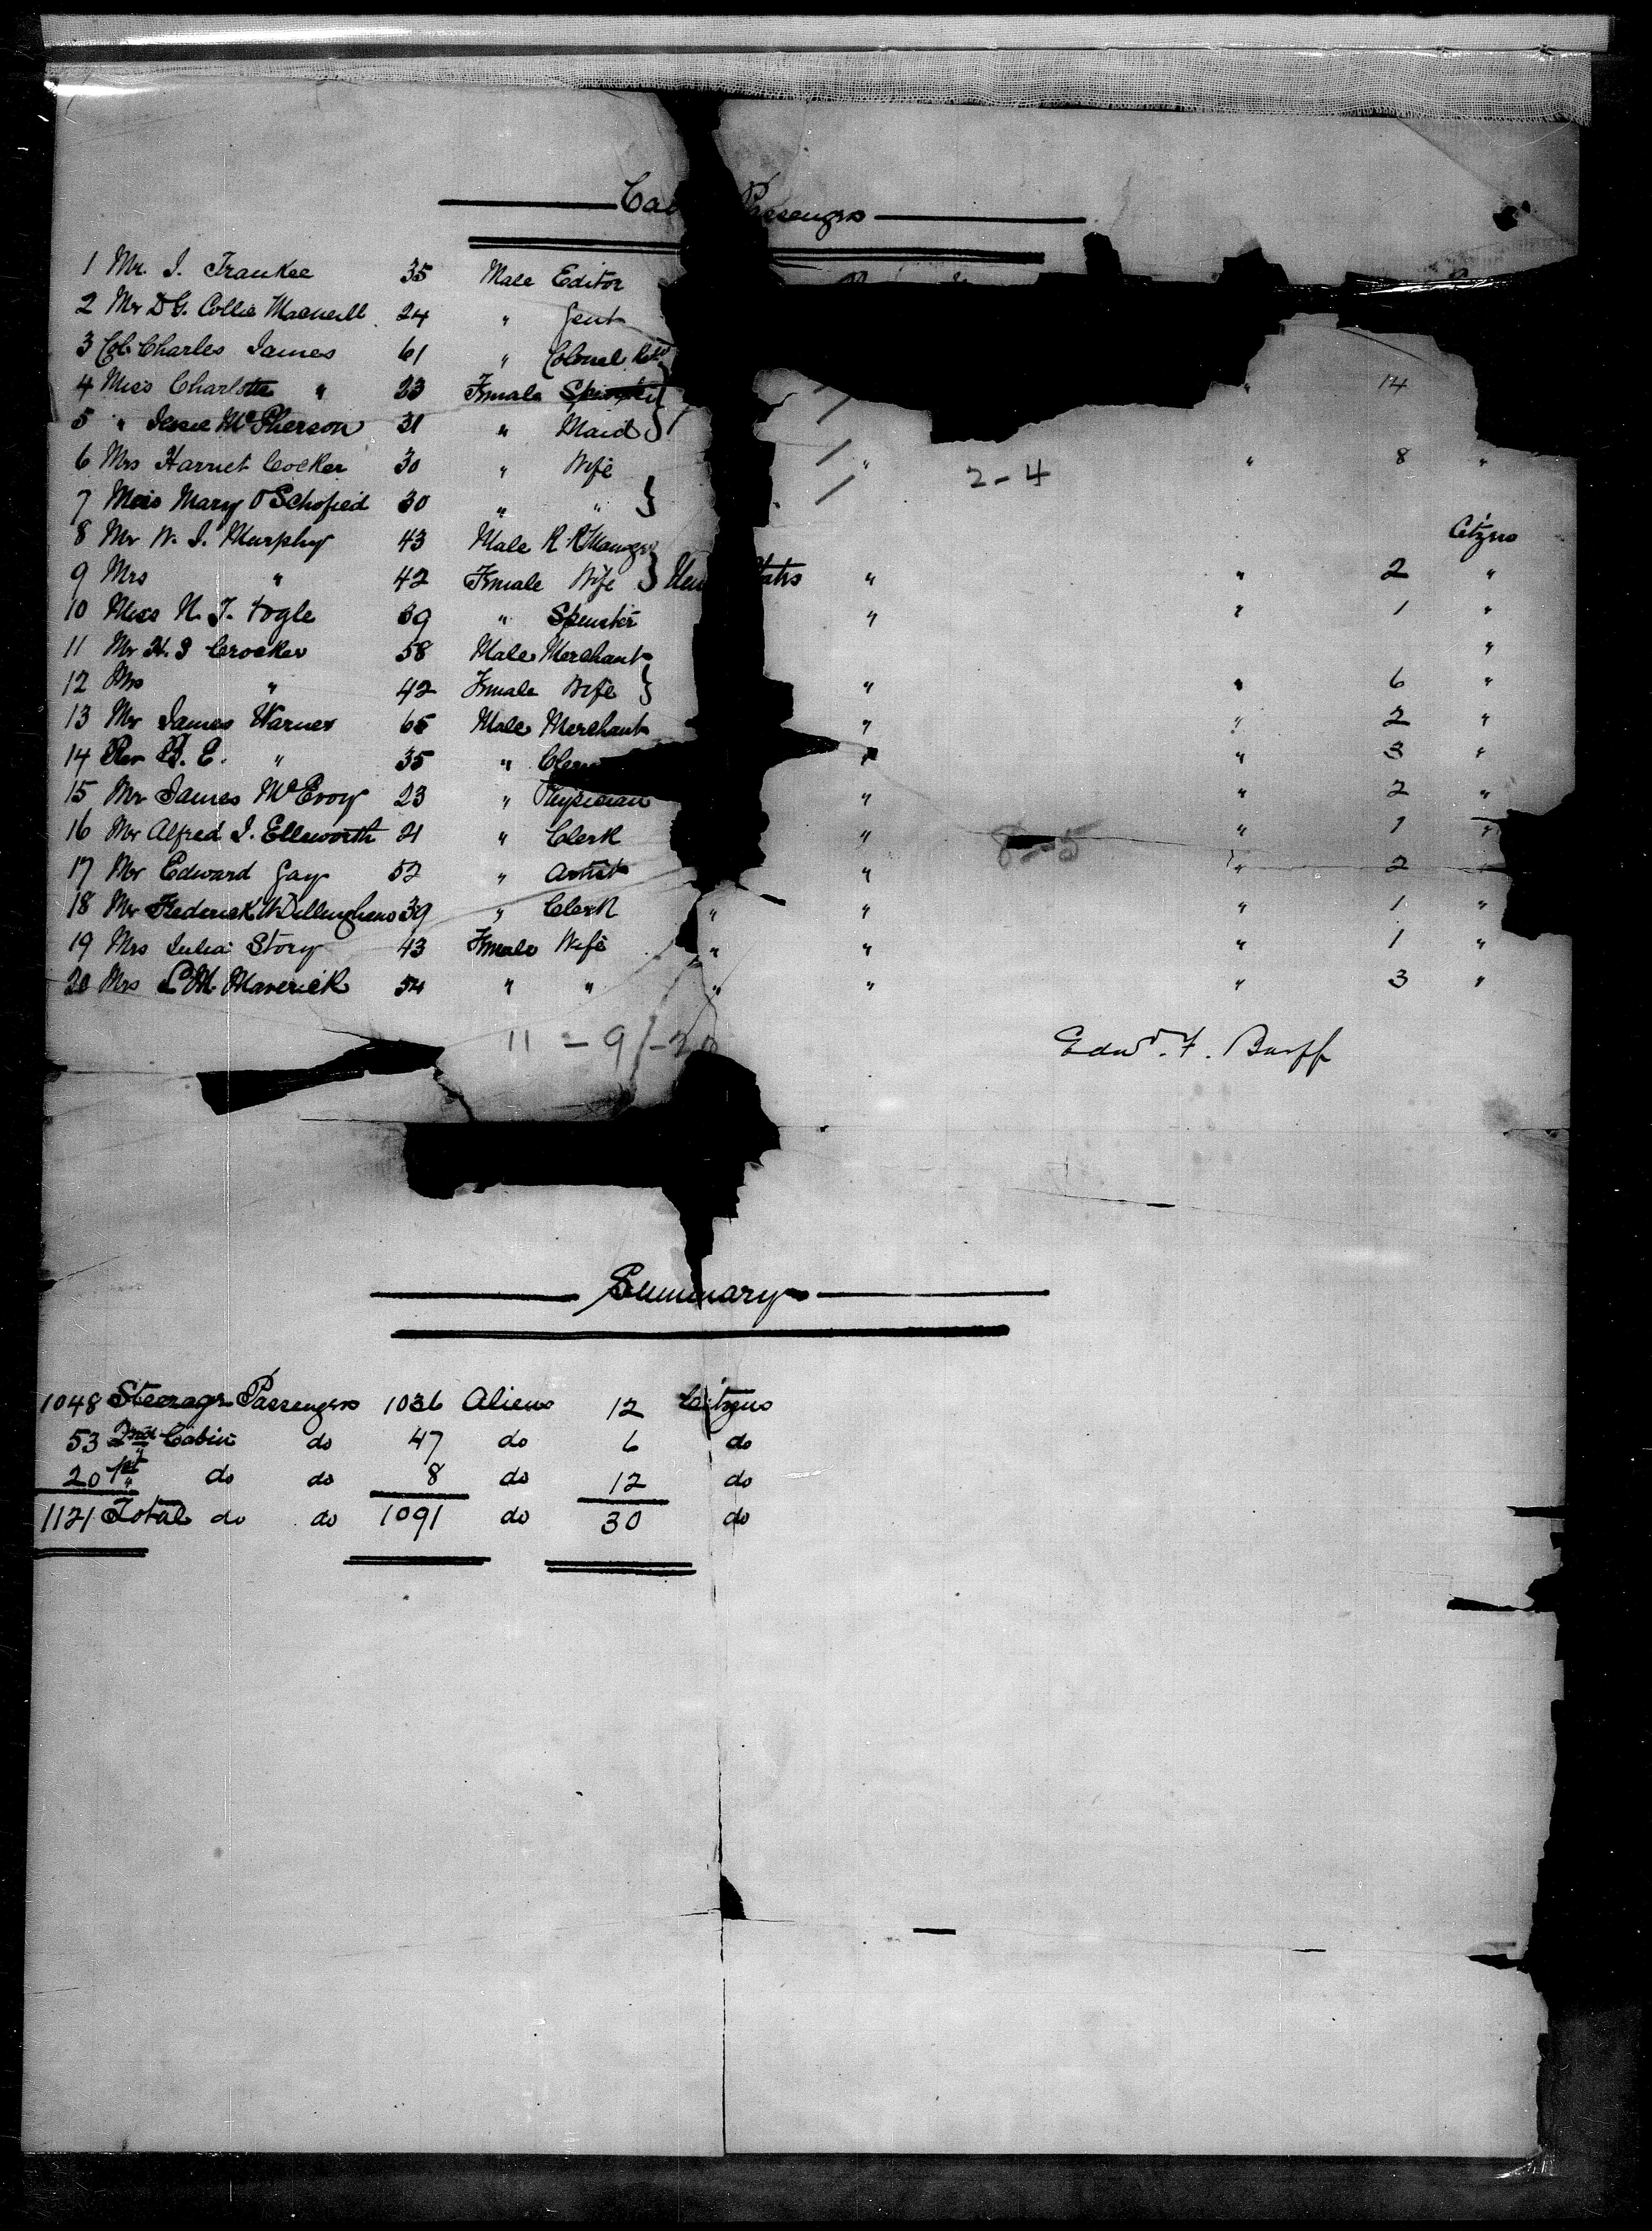 Passengers
1 Mr. I. Frankee 35 Male Editor
2 Mr D G. Collie Macneill 24 " Gent
3 Col. Charles James 61 " Colonel
4 Miss Charlotte " 23 Female Spinster } " 14
5 " Jessie McPherson 31 " Maid }
6 Mrs Harriet Cocker 30 " Wife " 2-4 " 8 "
7 Miss Mary O Schofied 30 " " }
8 Mr W. I. Murphy 43 Male R. R Citzens
9 Mrs " 42 Female Wife } " " 2 "
10 Miss N. J. Fogle 39 " Spinster " " 1 "
11 Mr H. S Crocker 58 Male Merchant "
12 Mrs " 42 Female Wife } " " 6 "
13 Mr James Warner 65 Male Merchant " " 2 "
14 Rev B. E. " 35 " " " 3 "
15 Mr James McEvoy 23 " Physician " " 2 "
16 Mr Alfred I. Ellsworth 21 " Clerk " " 1 "
17 Mr Edward Gay 52 " Artist " 8-5 " 2
18 Mr Frederick W Dillingham 39 " Clerk " " " 1 "
19 Mrs Julia Story 43 Female Wife " " " 1 "
20 Mrs L M. Maverick 54 " " " " " 3 "
11 - 9 /
Edwd. F. Barff
Summary
1048 Steerage Passengers 1036 Aliens 12 Citzens
53 2nd Cabin do 47 do 6 do
20 1st " do do 8 do 12 do
1121 Total do do 1091 do 30 do